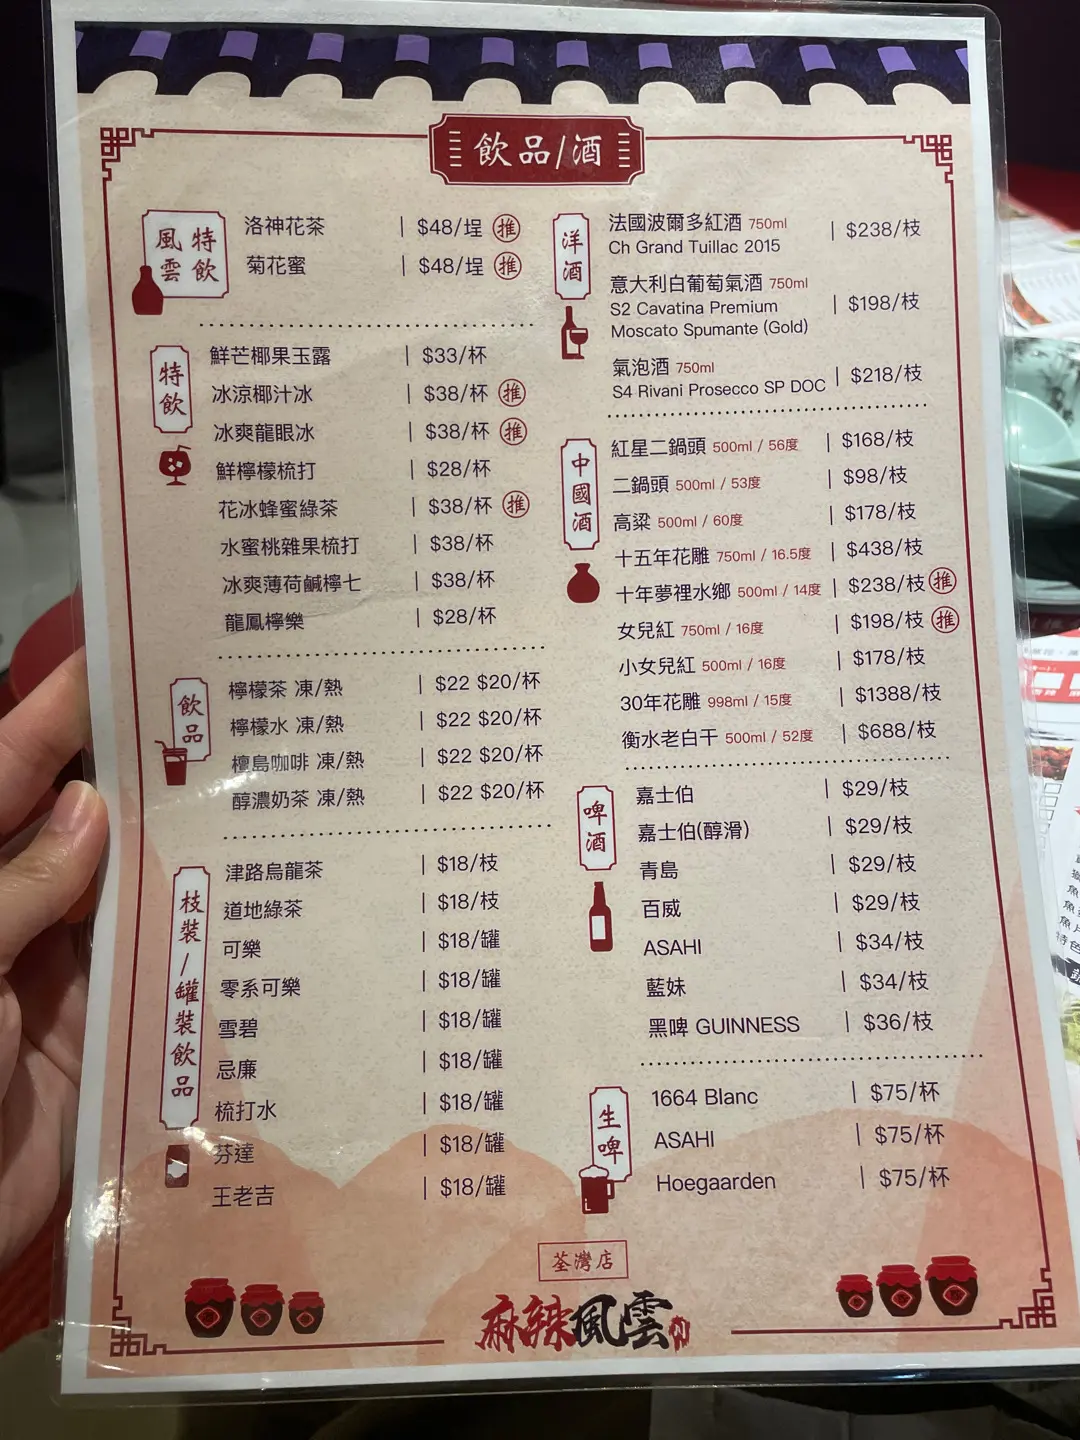 飲品/酒
風雲特飲
洛神花茶 | $48/埕 推
菊花蜜 | $48/埕 推
特飲
鮮芒椰果玉露 | $33/杯
冰涼椰汁冰 | $38/杯 推
冰爽龍眼冰 | $38/杯 推
鮮檸檬梳打 | $28/杯
花冰蜂蜜綠茶 | $38/杯 推
水蜜桃雜果梳打 | $38/杯
冰爽薄荷鹹檸七 | $38/杯
龍鳳檸樂 | $28/杯
飲品
檸檬茶 凍/熱 | $22 $20/杯
檸檬水 凍/熱 | $22 $20/杯
檀島咖啡 凍/熱 | $22 $20/杯
醇濃奶茶 凍/熱 | $22 $20/杯
枝裝/罐裝飲品
津路烏龍茶 | $18/枝
道地綠茶 | $18/枝
可樂 | $18/罐
零系可樂 | $18/罐
雪碧 | $18/罐
忌廉 | $18/罐
梳打水 | $18/罐
芬達 | $18/罐
王老吉 | $18/罐
洋酒
法國波爾多紅酒 750ml
Ch Grand Tuillac 2015 | $238/枝
意大利白葡萄氣酒 750ml
S2 Cavatina Premium | $198/枝
Moscato Spumante (Gold)
氣泡酒 750ml
S4 Rivani Prosecco SP DOC | $218/枝
中國酒
紅星二鍋頭 500ml / 56度 | $168/枝
二鍋頭 500ml / 53度 | $98/枝
高粱 500ml / 60度 | $178/枝
十五年花雕 750ml / 16.5度 | $438/枝
十年夢裡水鄉 500ml / 14度 | $238/枝 推
女兒紅 750ml / 16度 | $198/枝 推
小女兒紅 500ml / 16度 | $178/枝
30年花雕 998ml / 15度 | $1388/枝
衡水老白干 500ml / 52度 | $688/枝
啤酒
嘉士伯 | $29/枝
嘉士伯(醇滑) | $29/枝
青島 | $29/枝
百威 | $29/枝
ASAHI | $34/枝
藍妹 | $34/枝
黑啤 GUINNESS | $36/枝
生啤
1664 Blanc | $75/杯
ASAHI | $75/杯
Hoegaarden | $75/杯
荃灣店
麻辣風雲